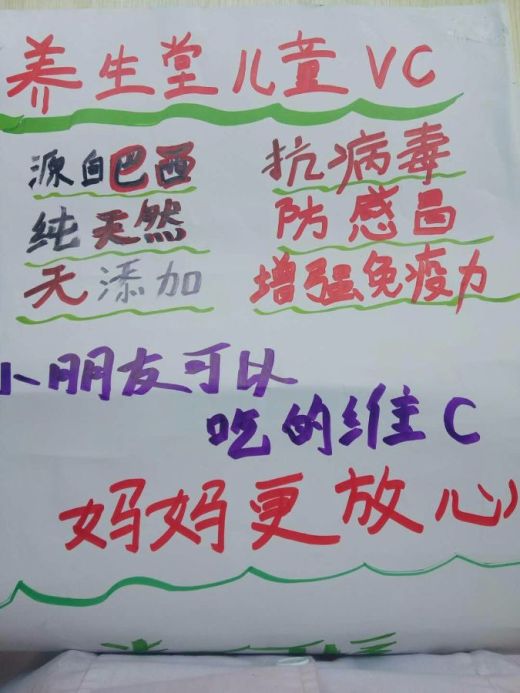 养生堂儿童VC
源自巴西
纯天然
无添加
抗病毒
防感冒
增强免疫力
小朋友可以
吃的维C
妈妈更放心